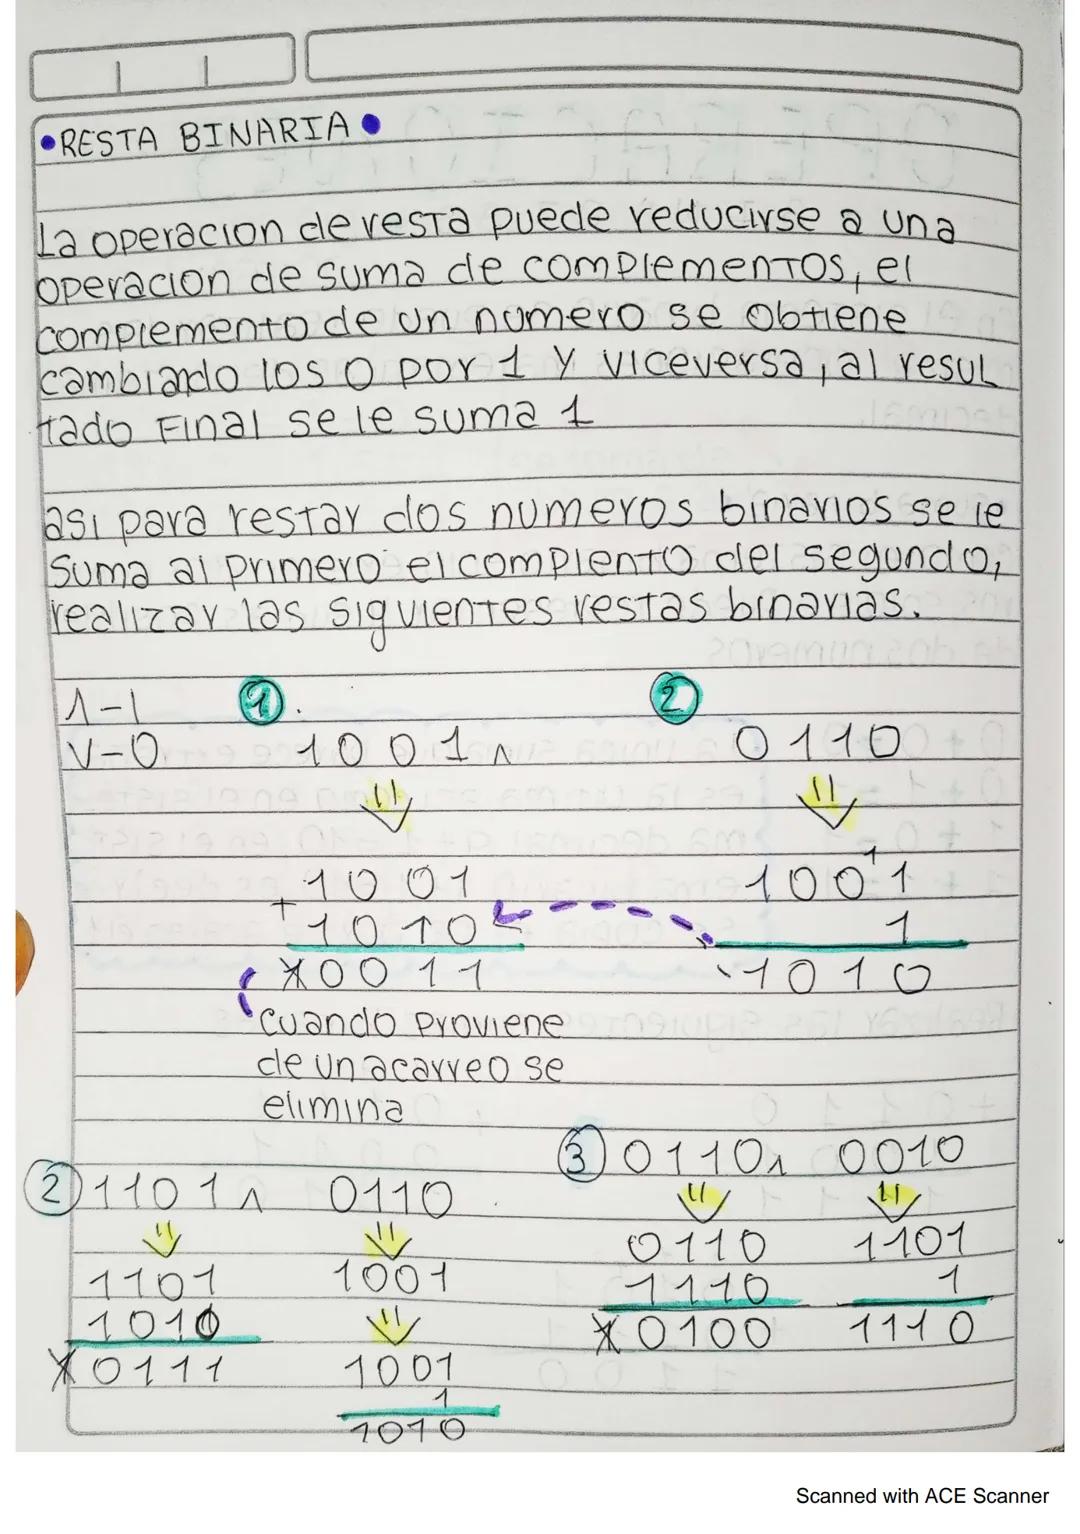 •RESTA BINARIA•
La operacion de resta puede reducirse a una
operacion de suma de complementos, el
complemento de un numero se obtiene
cambiando los 0 por 1 y viceversa, al resul
tado Final se le suma 1
asi para restar dos numeros binarios se le
suma al primero el complento del segundo,
realizar las siguientes restas binarias.
Λ-1
V-0
1.
1001 Λ
2
0110
1001
+ 1010
10011
cuando proviene
de un acarreo se
elimina
1
1001
1
1010
2 1101 Λ 0110
1101 1001
1010
10111 1001
1
1010
3 0110 Λ 0010
0110 1101
1110 1
10100 1110
Scanned with ACE Scanner